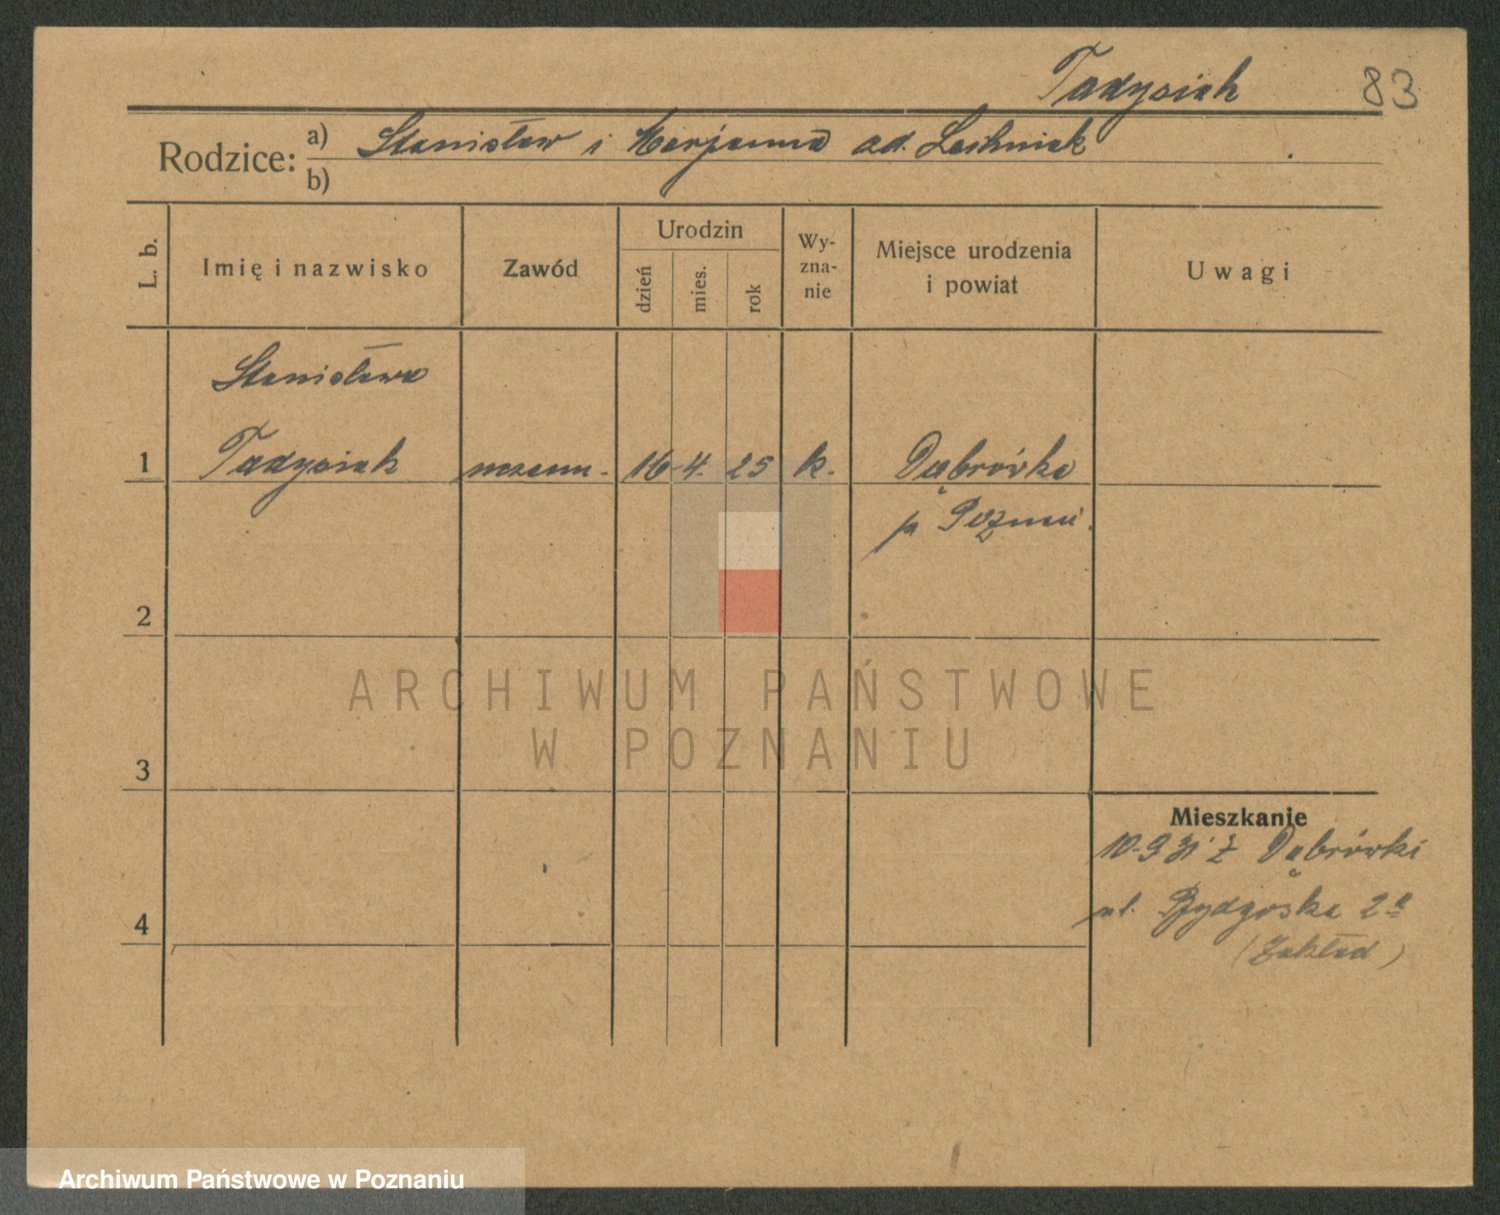 Tadysiak 83
Rodzice: a) Stanisław i Marjanna od. Leśniak
b)
L. b.
Imię i nazwisko
Zawód
Urodzin
dzień
mies.
rok
Wy-
zna-
nie
Miejsce urodzenia
i powiat
Uwagi
Stanisława
1 Tadysiak uczenn. 16 4. 25 k. Dąbrówka
p Poznań.
2
ARCHIWUM PAŃSTWOWE
W POZNANIU
3
Mieszkanie
10-9 31 z Dąbrówki
4 ul. Bydgoska 2a
(Zakład)
Archiwum Państwowe w Poznaniu